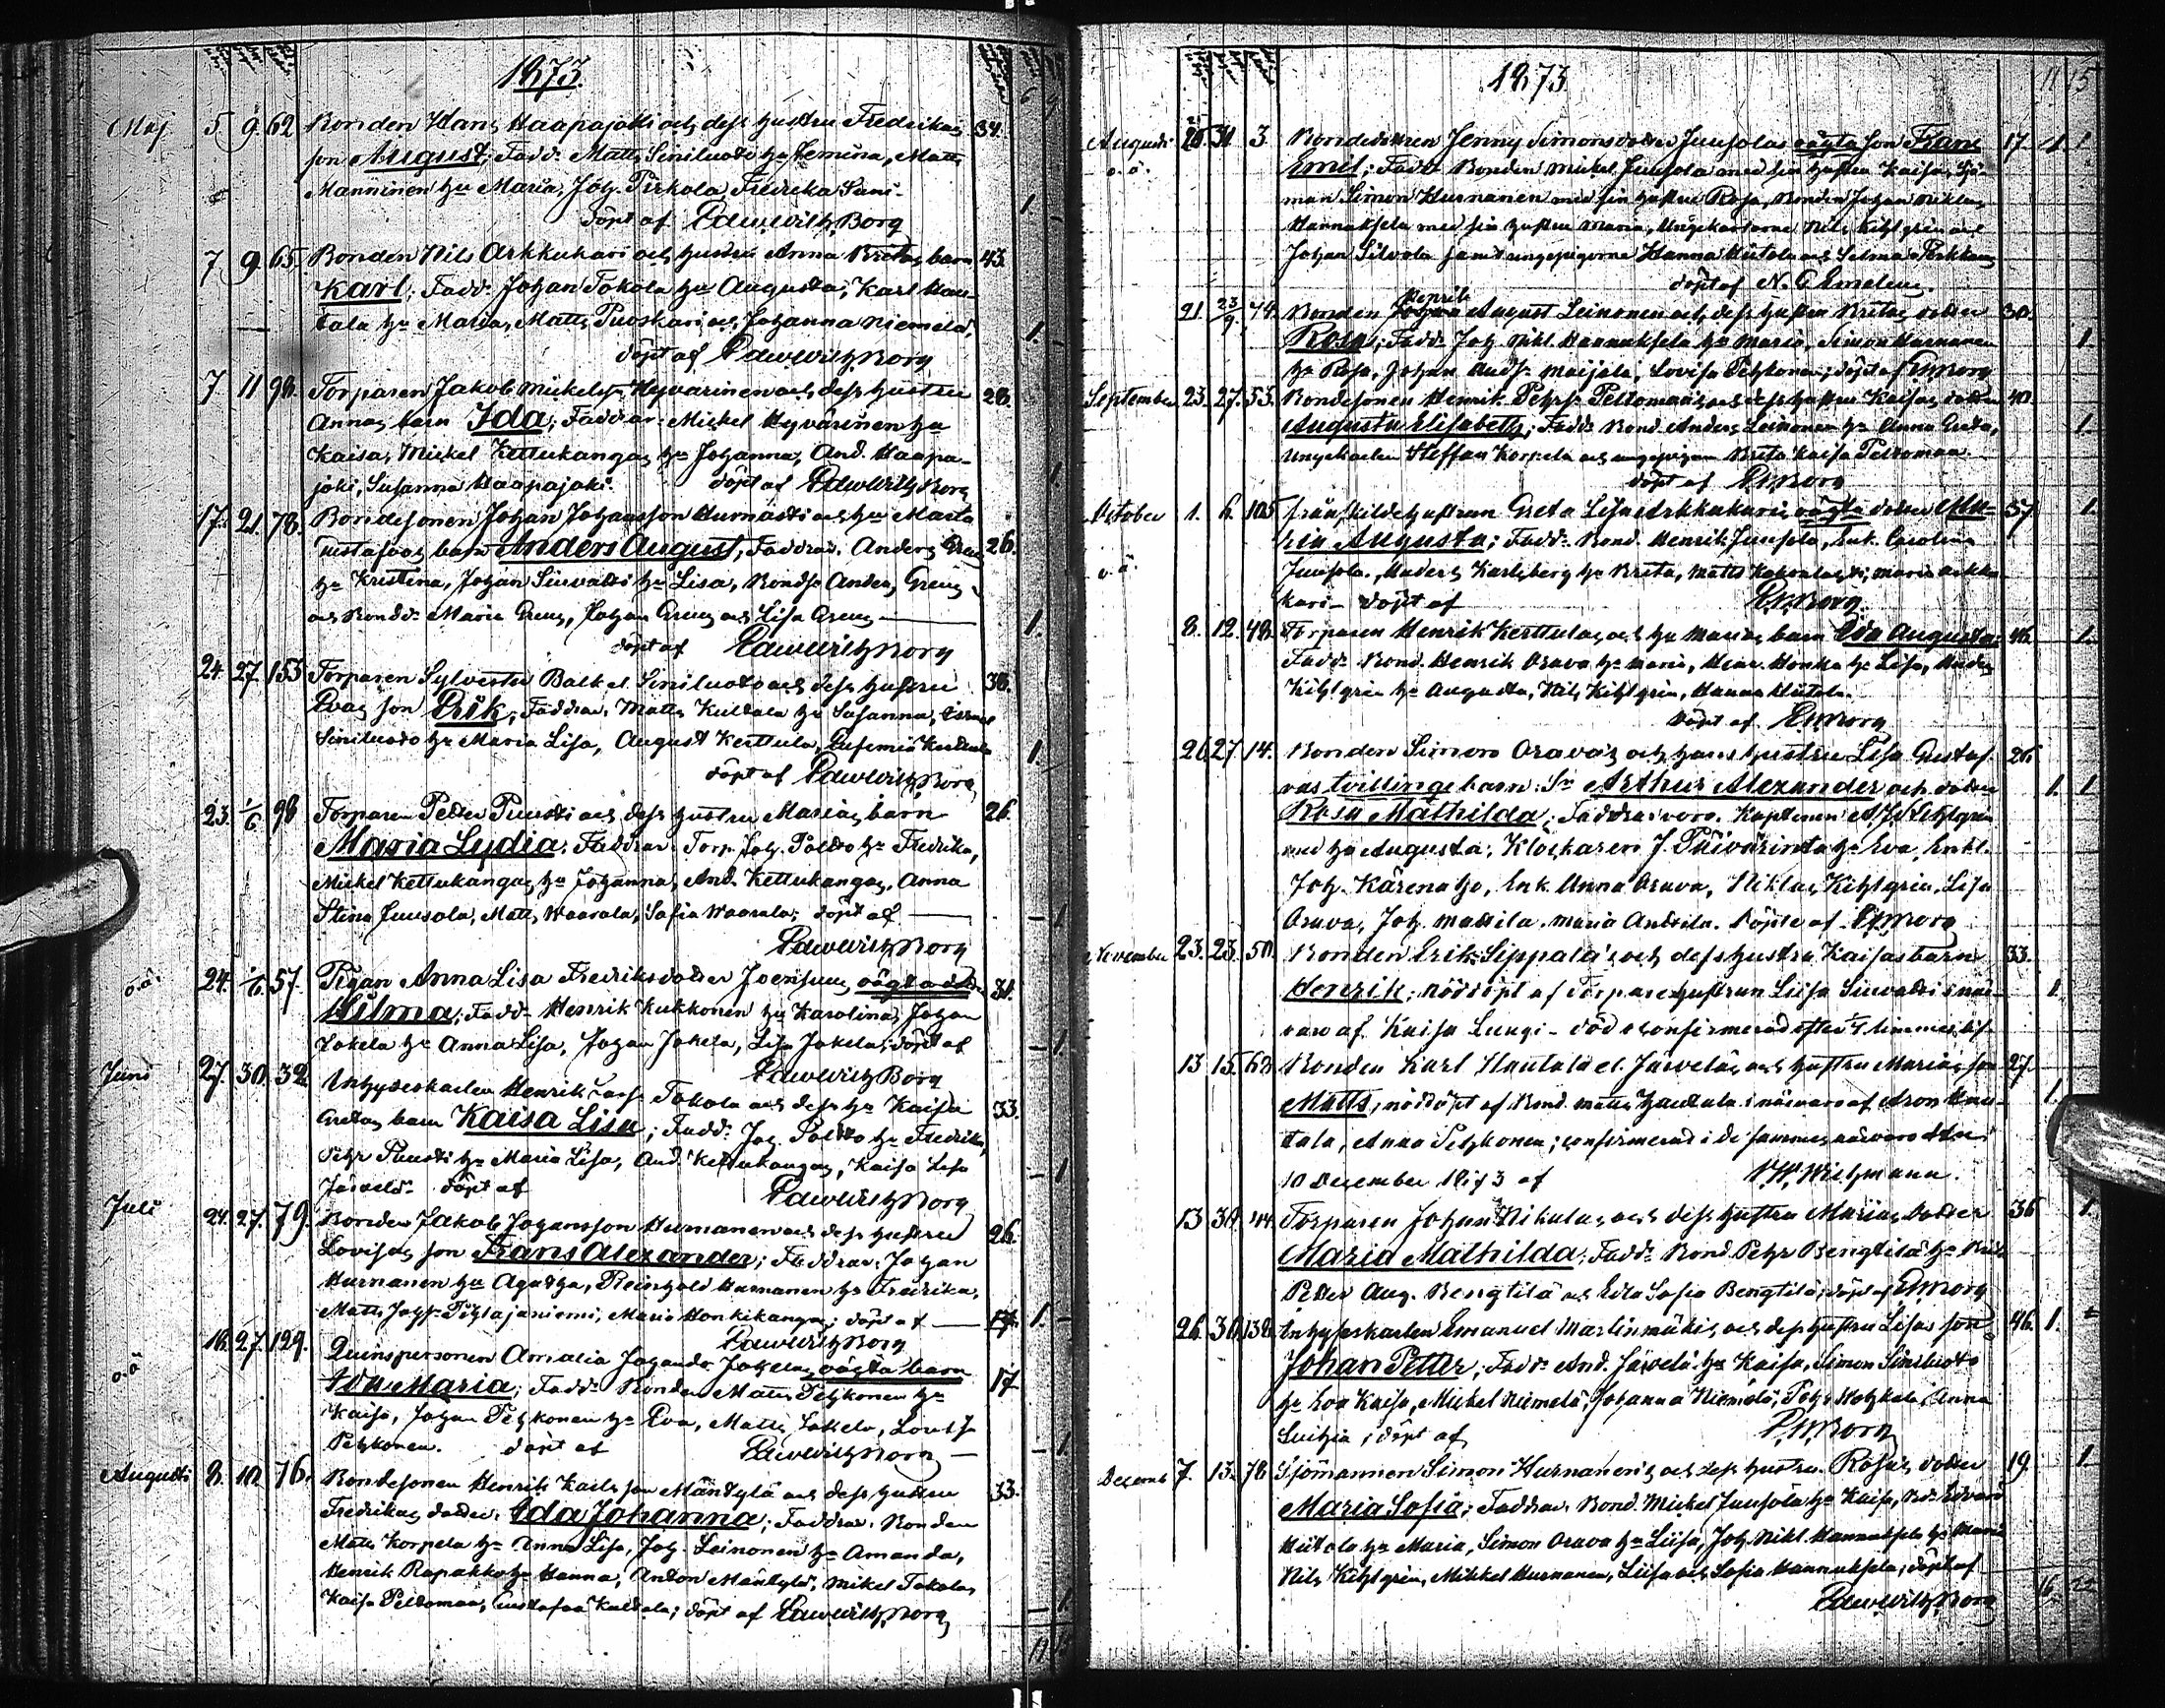 1873.
Maj 5 9. 62 Bonden Hans Haapajokki och dess hustru Fredrikas 34.
son August; Fadd: Matts Siniluoto hu Hemina, Matts
Manninen hu Maria, Joh. Pirkola, Fredrika Sani-
döpt af Edw. Wilh. Borg 1.
7 9. 65. Bonden Nils Arkkukari och hustru Anna Britas barn 43.
Karl; Fadd: Johan Tokola hu Augusta, Karl Hau-
tala hu Maria, Matts Puoskari och Johanna Niemelä, 1.
döpt af Edw. Wilh. Borg
7 11 98. Torparen Jakob Mickelss. Hyvärinen och dess hustru 28.
Annas barn Ida; Faddrar: Mickel Hyvärinen hu
Kaisa, Mickel Kettukangas hu Johanna, And. Haapa-
joki, Susanna Haapajoki. döpt af Edw. Wilh. Borg 1
17. 21. 78. Bondesonen Johan Johansson Hurnasti och hu Maria 26.
Gustafvas barn Anders August; Faddrar: Anders Greus
hu Kristina, Johan Siuvatti hu Lisa, Bonds. Anders Greus
och Bondd: Maria Greus, Johan Greus och Lisa Greus 1.
döpt af Edw. Wilh. Borg
24. 27. 153 Torparen Sylvester Balk el. Siniluoto och dess hustru 38.
Evas son Erik; Faddrar: Matts Kultala hu Susanna, Israel
Siniluoto hu Maria Lisa, August Kerttula, Eufemia Kerttula 1.
döpt af Edw. Wilh. Borg
23. 1/6 98 Torparen Petter Puusti och dess hustru Marias barn 26.
Maria Lydia; Faddrar: Torp. Joh. Poldo hu Fredrika,
Mickel Kettukangas hu Johanna, And. Kettukangas, Anna
Stina Juusola, Matts Waarala, Sofia Waarala; döpt af 1
Edw. Wilh. Borg
o.ä. 24. 1/6. 57. Pigan Anna Lisa Fredriksdotter Joensuu oägta dotter 31.
Hilma; Fadd: Henrik Kukkonen hu Karolina, Johan
Jokela hu Anna Lisa, Johan Jokela, Lisa Jokela; döpt af 1.
Edw. Wilh. Borg
Juni 27. 30. 32. Inhyseskarlen Henrik Tokola och dess hu Kaisa 33.
Gretas barn Kaisa Lisa; Fadd: Joh. Poldo hu Fredrika,
Pehr Puusti hu Maria Lisa, And. Kettukangas, Kaisa Lisa 1
Järvelä. döpt af Edw. Wilh. Borg
Juli 24. 27. 79. Bonden Jakob Johansson Hurnanen och dess hustru 26.
Lovisas son Frans Alexander; Faddrar: Johan
Hurnanen hu Agatha, Reinhold Hurnanen hu Fredrika,
Matts Johs. Pihlajaniemi, Maria Honkikangas; döpt af 1.
Edw. Wilh. Borg
o.ä 18. 27. 129. Quinspersonen Amalia Johansdr Jokelas oägta barn 17
Ida Maria; Fadd: Bonden Matts Pehkonen hu
Kaisa, Johan Pehkonen hu Eva, Matts Jokela, Lovisa
Pehkonen. döpt af Edw. Wilh. Borg 1.
Augusti 8. 10. 76. Bondesonen Henrik Karlsson Mäntylä och dess hustru 33.
Fredrikas dotter Ida Johanna; Faddrar: Bonden
Matts Korpela hu Anna Lisa, Joh. Leinonen hu Amanda,
Henrik Rapakko hu Hanna, Anton Mäntylä, Mikel Tokola,
Kaisa Peltomaa, Gustafva Kultala; döpt af Edw. Wilh. Borg 1.
11
1873
11 15
Augusti 20 31 3 Bondedottren Jenny Simonsdotter Juusolas oägta son Frans 17 1 1
o.ä. Emel; Fadd: Bonden Mickel Juusola med sin hustru Kaisa, Sjö-
man Simon Hurnanen med sin hustru Rosa, Bonden Johan Niklas
Hannuksela med sin hustru Maria, Ungekarlarne Nils Kihlgrén och
Johan Silvola samt ungpigorna Hanna Hiitola och Selma Pirkkanen
döpt af N. G. Emeleus.
21. 23/9. 74. Bonden Henrik August Leinonen och dess hustru Britas dotter 30.
Rosa; Fadd: Joh. Nikl. Hannuksela hu Maria, Simon Hurnanen 1.
hu Rosa, Johan Anders. Maijala, Lovisa Pehkonen; döpt af EWBorg
September 23. 27. 53. Bondesonen Henrik Pehrs. Peltomaas och dess hustru Kaisas dotter 40.
Augusta Elisabeth; Fadd: Bond. Anders Leinonen hu Anna Greta, 1.
Ungekarlen Steffan Korpela och ungpigan Brita Kaisa Peltomaa.
döpt af EWBorg
October 1. 6. 105 frånskilde hustrun Greta Lisa Arkkukaris oägta dotter Ma- 37. 1.
ria Augusta; Fadd: Bond. Henrik Juusola, Enk. Carolina
o.ä. Juusola, Anders Karlsberg hu Brita, Matts, Maria Arkku-
kari. döpt af EWBorg.
8. 12. 48. Torparen Henrik Kerttulas och hu Marias barn Ida Augusta; 46. 1.
Fadd: Bond. Henrik Orava hu Maria, Henr. Honka hu Lisa, Anders
Kihlgrén hu Augusta, Nils Kihlgrén, Hanna Hiitola.
Döpt af EWBorg
26 27. 14. Bonden Simon Orava's och hans hustru Lisa Gustaf- 26
vas tvillingebarn: Sn Arthur Alexander och dotter 1. 1
Rosa Mathilda; Faddrar voro: Kaptenen A. J. Kihlgrén
med hu Augusta, Klockaren J. Päivärinta hu Eva, Enkl.
Joh. Kärenaho, Enk. Anna Orava, Niklas Kihlgrén, Lisa
Orava, Joh. Mattila, Maria Andtila. Döpte af EWBorg
November 23. 23. 50. Bonden Erik Sippala's och dess hustru Kaisas barn 33.
Henrik; nöddöpt af Torparehustrun Liisa Siuvatti i när- 1.
varo af Kaisa Lungi - död o confirmerad efter 1/4 timmes lif.
13 15. 68 Bonden Karl Hautala el. Järvelä's och hustru Marias son 27.
Matts; nöddöpt af Bond. Matts Hautala i närvaro af Aron Hau- 1.
tala, Anna Pehkonen; confirmerad i de sammas närvaro den
10 December 1873 af Wichmann.
13 30. 44. Torparen Johan Nikulas och dess hustru Marias dotter 36 1.
Maria Mathilda; Fadd: Bond. Pehr Bengtilä hu Brita
Petter Aug. Bengtilä och Edla Sofia Bengtilä; döpt af EWBorg
26. 30. 138. Inhyseskarlen Emanuel Martinmäkis och dess hustru Lisas son 46. 1.
Johan Petter; Fadd: And. Järvelä hu Kaisa, Simon Siniluoto
hu Eva Kaisa, Mickel Niemelä, Johanna Niemelä, Pehr Kohkala, Anna
döpt af EWBorg
Decemb 7. 13. 78 Sjömannen Simon Hurnanen's och dess hustru Rosas dotter 19. 1.
Maria Sofia; Faddrar: Bond. Mickel Juusola hu Kaisa, Bd. Edvard
Hiitola hu Maria, Simon Orava hu Liisa, Joh. Nikl. Hannuksela hu Maria
Nils Kihlgrén, Mikkel Hurnanen, Liisa och Sofia Hannuksela; döpt af
Edw. Wilh. Borg 16 22